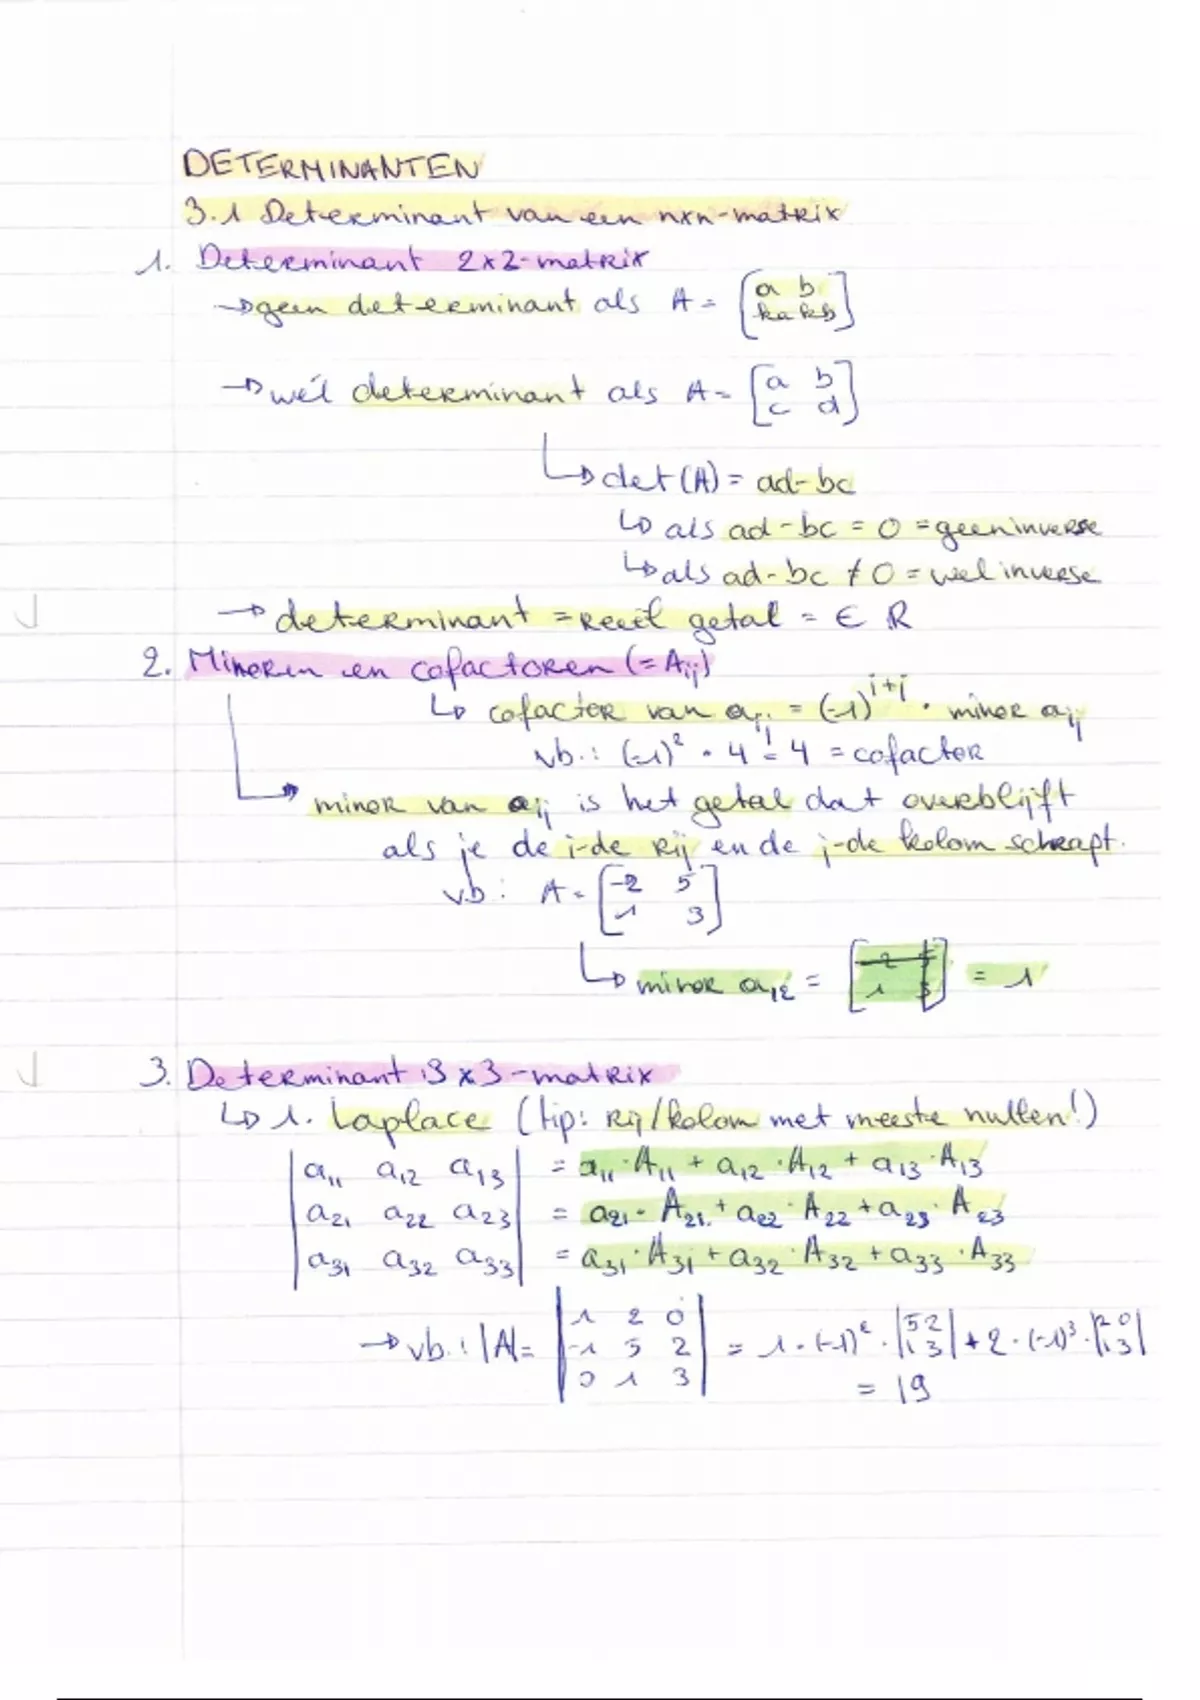 DETERMINANTEN
3.1 Determinant van een nxn-matrix
1. Determinant 2x2-matrix
→ geen determinant als A = [a b; ka kb]
→ wél determinant als A = [a b; c d]
↳ det(A) = ad-bc
↳ als ad-bc = 0 = geen inverse
↳ als ad-bc ≠ 0 = wel inverse
→ determinant = reëel getal = ∈ R
2. Minoren en cofactoren (= Aij)
↳ cofactor van aij = (-1)^i+j · minor aij
vb.: (-1)² · 4 = 4 = cofactor
minor van aij is het getal dat overblijft
als je de i-de rij en de j-de kolom schrapt.
vb: A = [-2 5; 1 3]
↳ minor a12 = [-2 5; 1 3] = 1
3. Determinant 3x3-matrix
↳ 1. Laplace (tip: rij/kolom met meeste nullen!)
|a11 a12 a13| = a11 · A11 + a12 · A12 + a13 · A13
|a21 a22 a23| = a21 · A21 + a22 · A22 + a23 · A23
|a31 a32 a33| = a31 · A31 + a32 · A32 + a33 · A33
→ vb.: |A| = |1 2 0; -1 5 2; 0 1 3| = 1 · (-1)² · |5 2; 1 3| + 2 · (-1)³ · |2 0; 1 3|
= 19